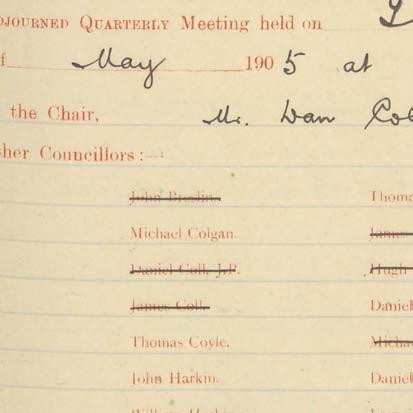 DJOURNED QUARTERLY Meeting held on 9
f May 1905 at
the Chair, Mr. Dan Col
her Councillors :—
John Breslin. Thoma
Michael Colgan. James
Daniel Coll, J.P. Hugh
James Coll. Daniel
Thomas Coyle. Micha
John Harkin. Daniel